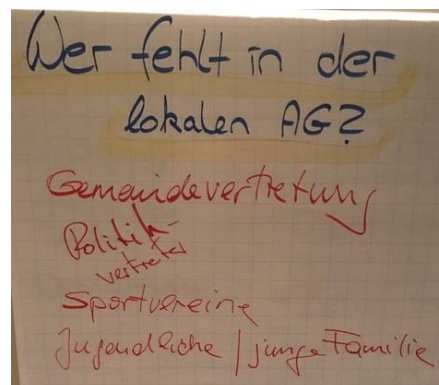 Wer fehlt in der
lokalen AG?
Gemeindevertretung
Politik-
vertreter
Sportvereine
Jugendliche / junge Familie